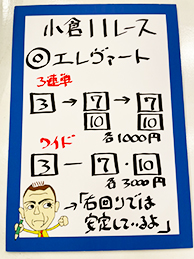 小倉11レース
◎エレヴァート
3連単
3→7→7
10 10
各1000円
ワイド
3ー7・10
各3000円
→「右回りでは
安定しているよ」